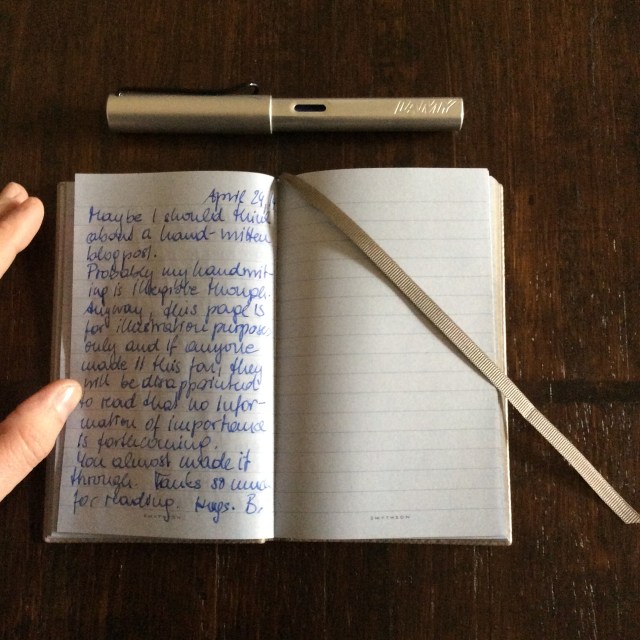 LAMY
April 24,
Maybe I should think
about a hand-written
blogpost.
Probably my handwrit-
ing is illegible though.
Anyway, this page is
for illustration purpose
only and if anyone
made it this far, they
will be disappointed
to read that no infor-
mation of importance
is forthcoming.
You almost made it
through. Tanks so much
for reading. Hugs. B.
SMYTHSON